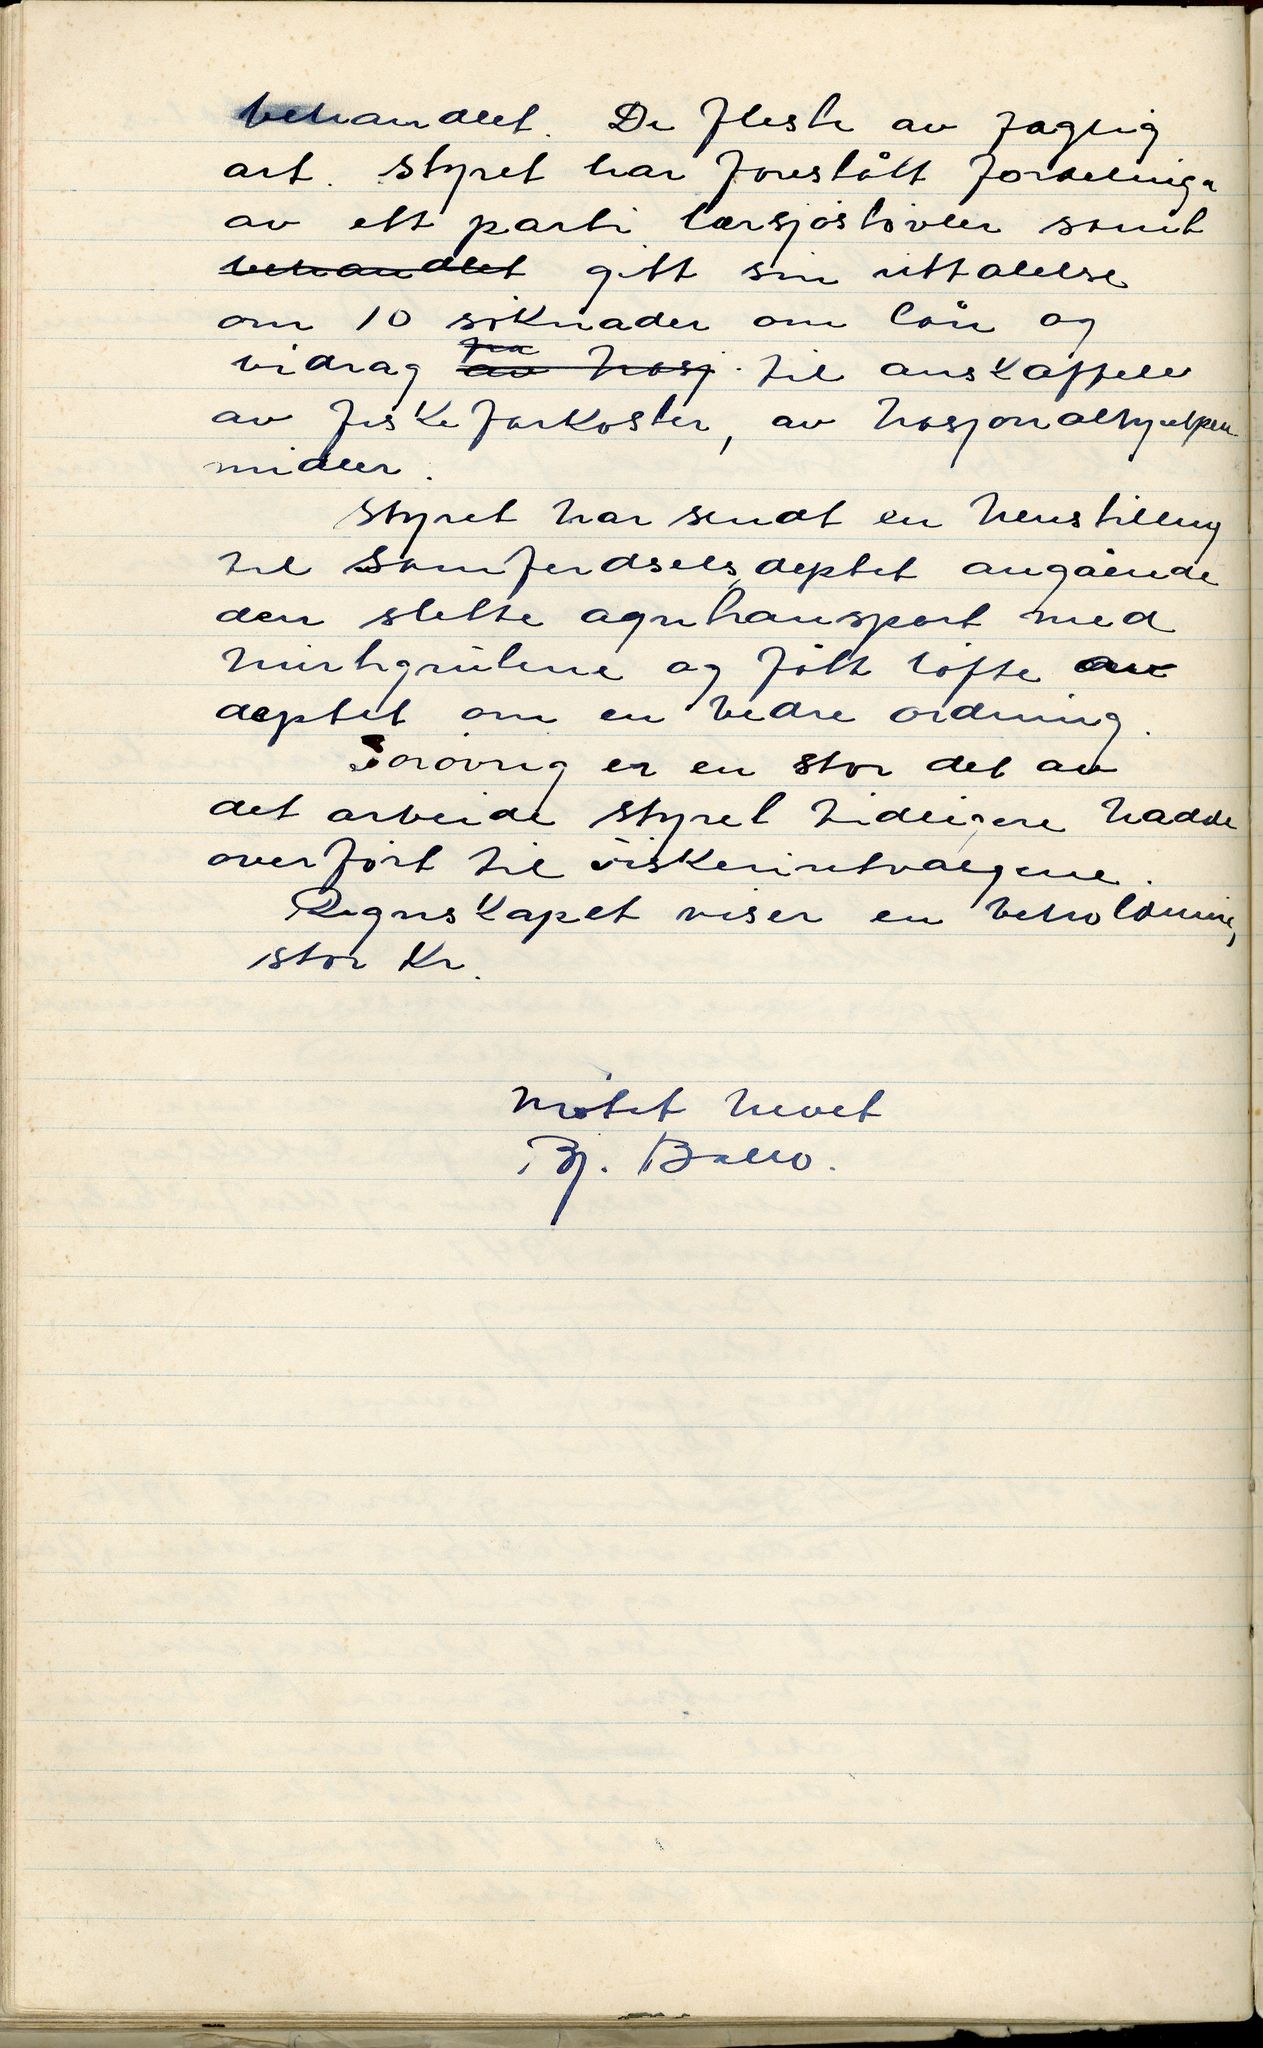 behandlet. De fleste av faglig
art. Styret har forestått fordelinga
av ett parti lærsjøstøvler samt
behandlet gitt sin uttalelse
om 10 søknader om lån og
vidrag av nasj. fra til anskaffelse
av fiskefarkoster, av nasjonalhjelpen
midler.
Styret har sendt en henstilling
til Samferdselsdeptet angående
den slette agntransport med
hurtigrutene og fått løfte av
deptet om en bedre ordning.
Forøvrig er en stor del av
det arbeide styret tidligere hadde
overført til fiskeriutvalgene.
Regnskapet viser en beholdning,
stor kr.
Møtet hevet
Bj. Ballo.